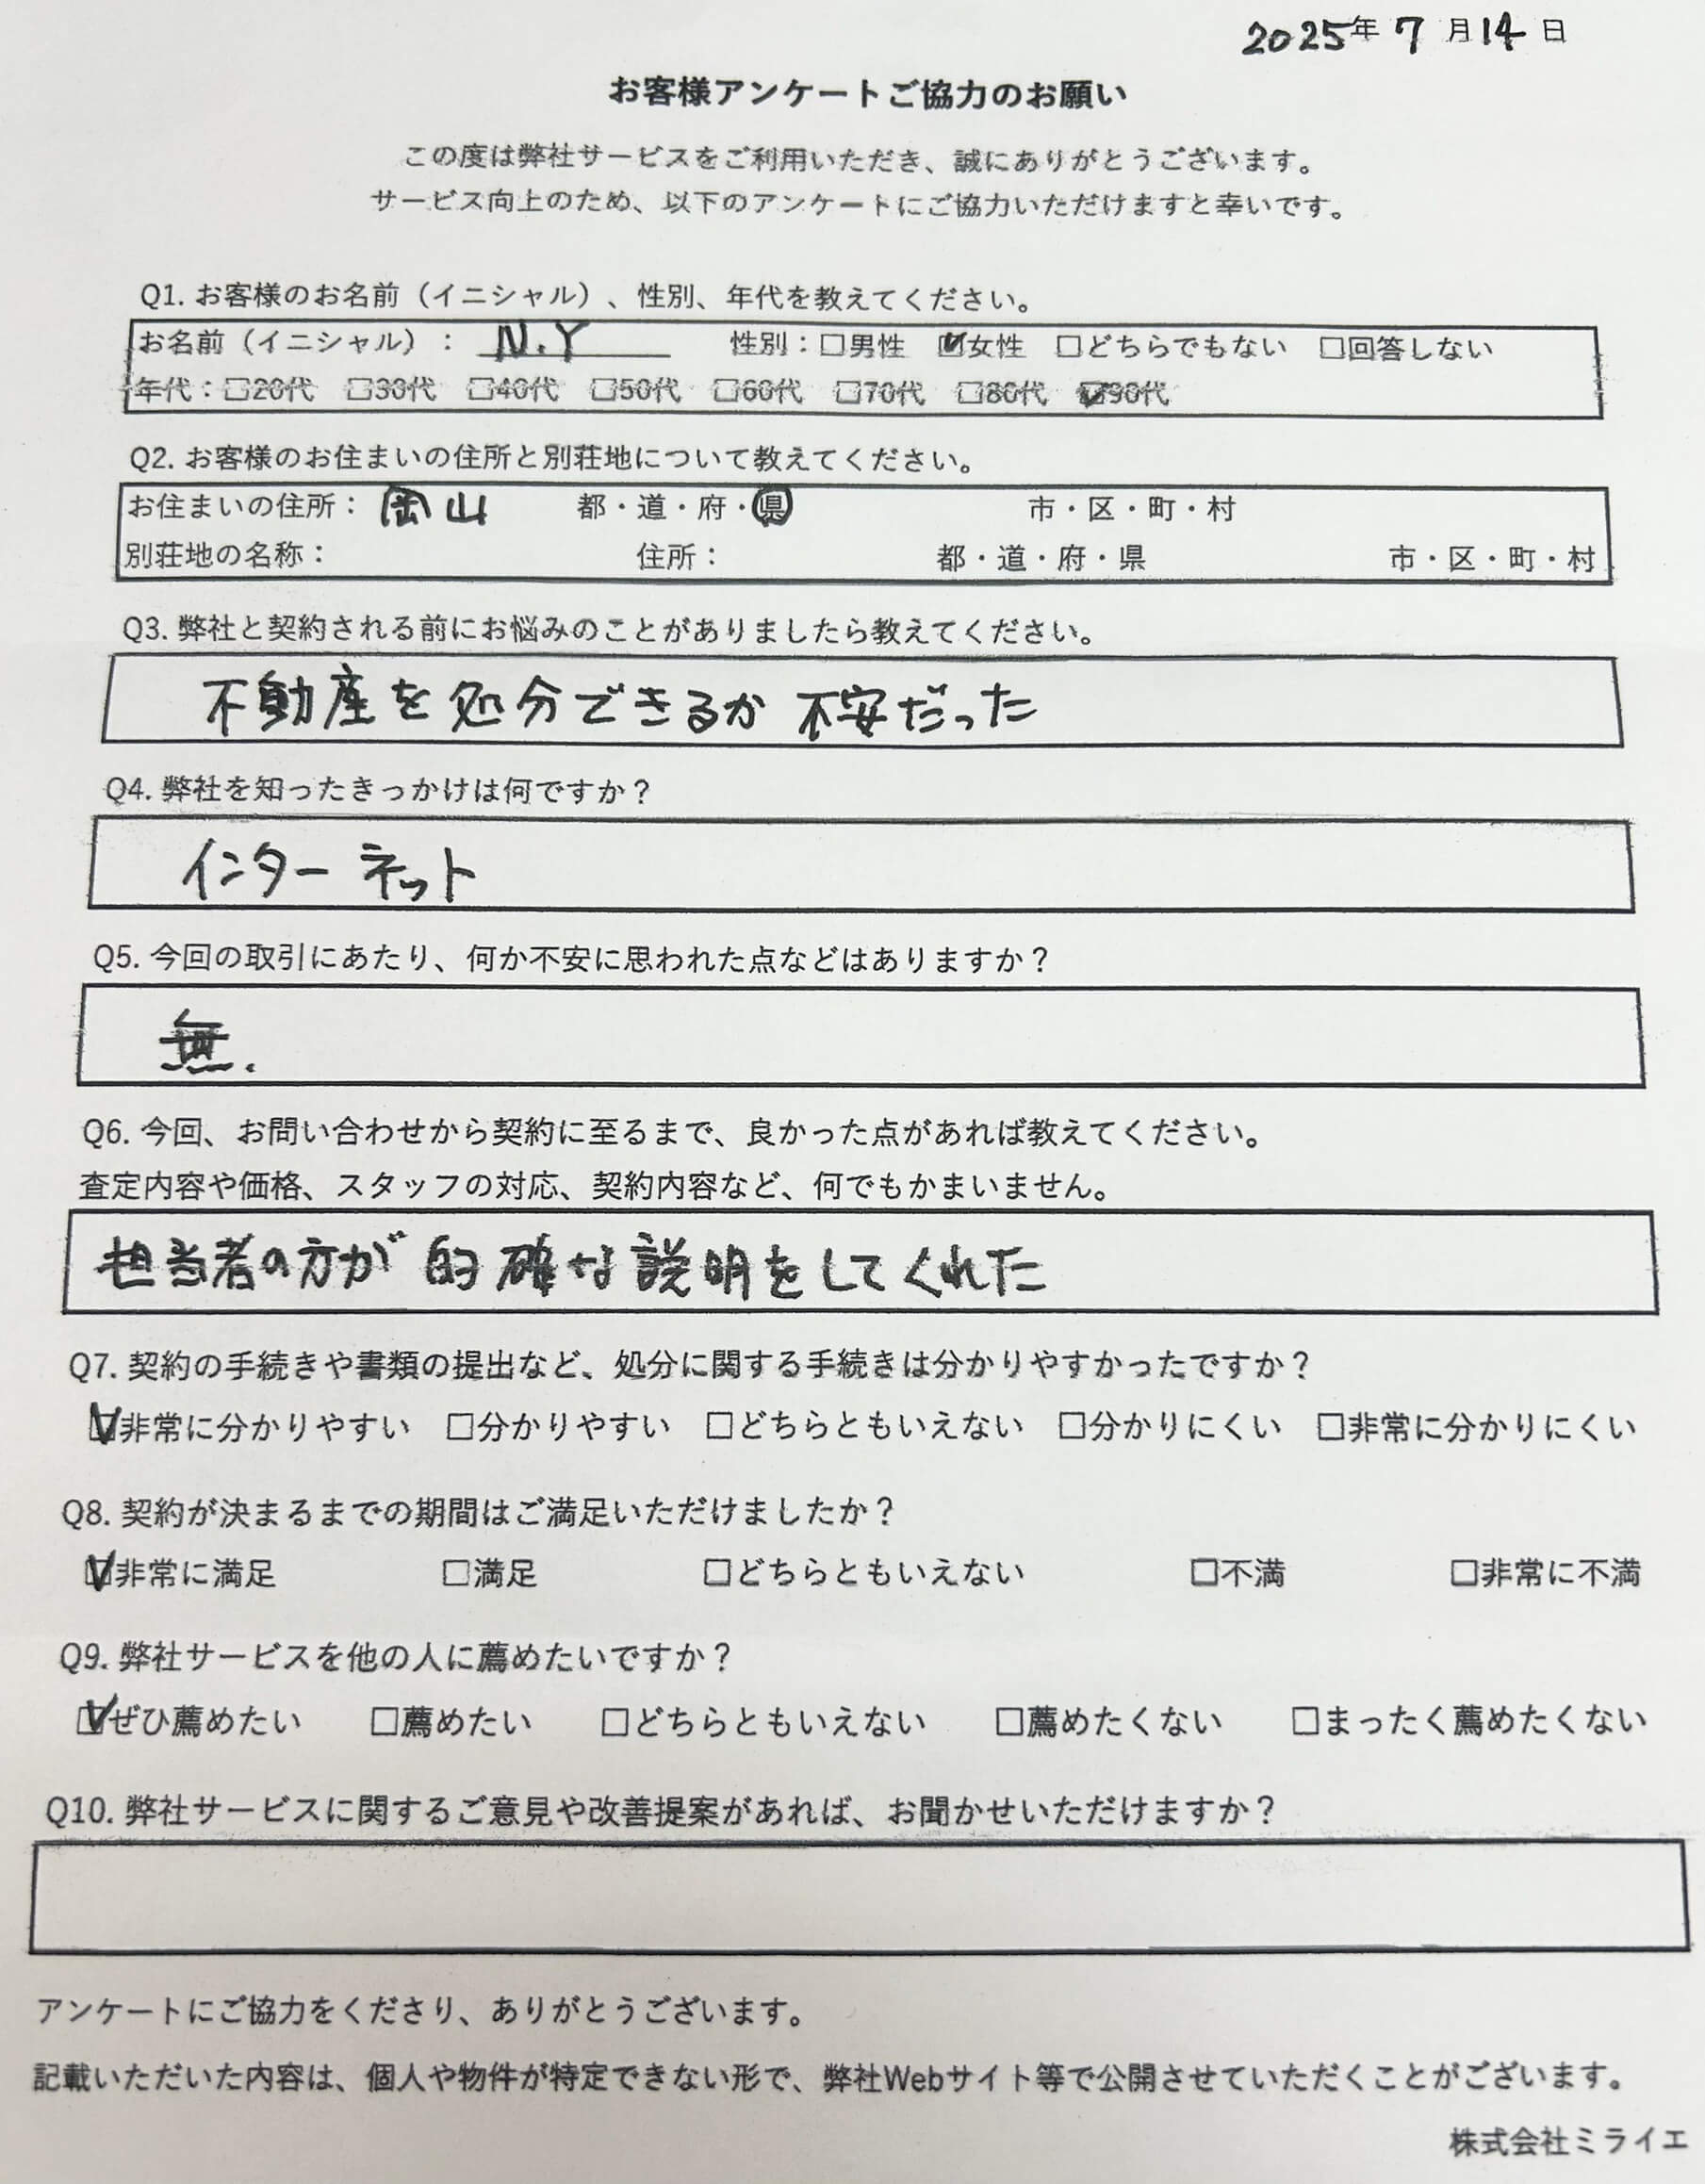 2025年 7月14日
お客様アンケートご協力のお願い
この度は弊社サービスをご利用いただき、誠にありがとうございます。
サービス向上のため、以下のアンケートにご協力いただけますと幸いです。
Q1. お客様のお名前（イニシャル）、性別、年代を教えてください。
お名前（イニシャル）： N.Y 性別：☐男性 ☑女性 ☐どちらでもない ☐回答しない
年代：☐20代 ☐30代 ☐40代 ☐50代 ☐60代 ☐70代 ☐80代 ☑90代
Q2. お客様のお住まいの住所と別荘地について教えてください。
お住まいの住所： 岡山 都・道・府・県 市・区・町・村
別荘地の名称： 住所： 都・道・府・県 市・区・町・村
Q3. 弊社と契約される前にお悩みのことがありましたら教えてください。
不動産を処分できるか 不安だった
Q4. 弊社を知ったきっかけは何ですか？
インターネット
Q5. 今回の取引にあたり、何か不安に思われた点などはありますか？
無.
Q6. 今回、お問い合わせから契約に至るまで、良かった点があれば教えてください。
査定内容や価格、スタッフの対応、契約内容など、何でもかまいません。
担当者の方が 的確な説明をしてくれた
Q7. 契約の手続きや書類の提出など、処分に関する手続きは分かりやすかったですか？
☑非常に分かりやすい ☐分かりやすい ☐どちらともいえない ☐分かりにくい ☐非常に分かりにくい
Q8. 契約が決まるまでの期間はご満足いただけましたか？
☑非常に満足 ☐満足 ☐どちらともいえない ☐不満 ☐非常に不満
Q9. 弊社サービスを他の人に薦めたいですか？
☑ぜひ薦めたい ☐薦めたい ☐どちらともいえない ☐薦めたくない ☐まったく薦めたくない
Q10. 弊社サービスに関するご意見や改善提案があれば、お聞かせいただけますか？
アンケートにご協力をくださり、ありがとうございます。
記載いただいた内容は、個人や物件が特定できない形で、弊社Webサイト等で公開させていただくことがございます。
株式会社ミライエ